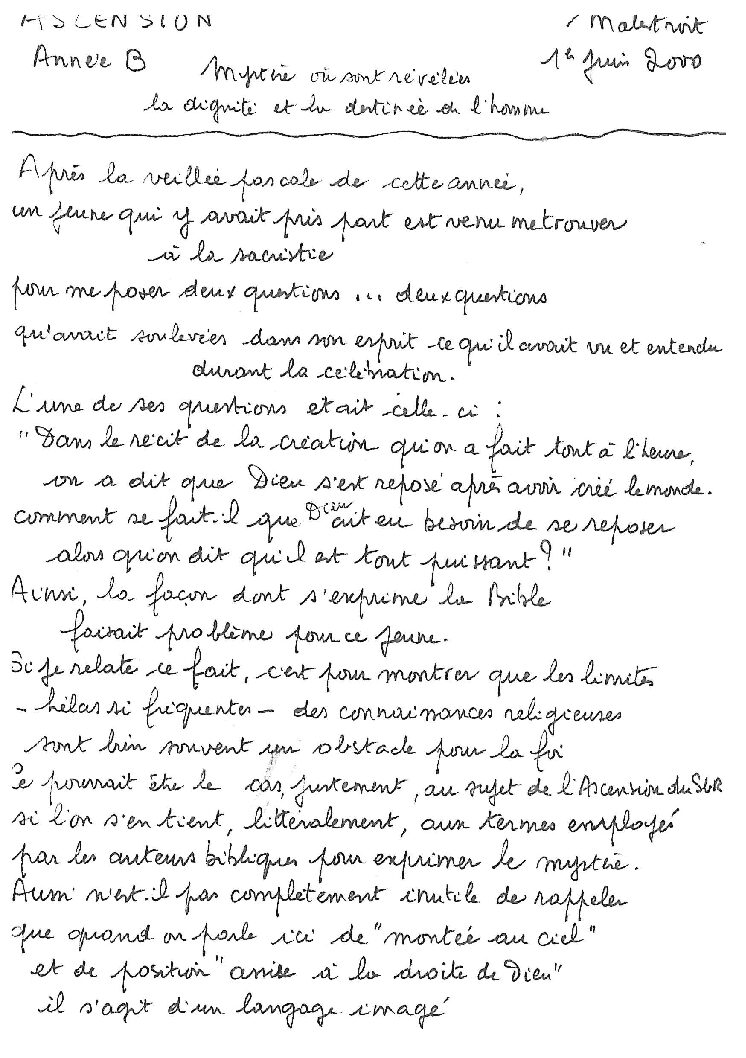 ASCENSION / Malestroit
Année B 1er Juin 2000
Mystère où sont révélées
la dignité et la destinée de l'homme
Après la veillée pascale de cette année,
un jeune qui y avait pris part est venu me trouver
à la sacristie
pour me poser deux questions ... deux questions
qu'avait soulevées dans son esprit ce qu'il avait vu et entendu
durant la célébration.
L'une de ses questions était celle-ci :
"Dans le récit de la création qu'on a fait tout à l'heure,
on a dit que Dieu s'est reposé après avoir créé le monde.
comment se fait-il que Dieu ait eu besoin de se reposer
alors qu'on dit qu'il est tout puissant ?"
Ainsi, la façon dont s'exprime la Bible
faisait problème pour ce jeune.
Si je relate ce fait, c'est pour montrer que les limites
- hélas si fréquentes - des connaissances religieuses
sont bien souvent un obstacle pour la foi
Ce pourrait être le cas, justement, au sujet de l'Ascension du SGR
si l'on s'en tient, littéralement, aux termes employés
par les auteurs bibliques pour exprimer le mystère.
Aussi n'est-il pas complètement inutile de rappeler
que quand on parle ici de "montée au ciel"
et de position "assise à la droite de Dieu"
il s'agit d'un langage imagé